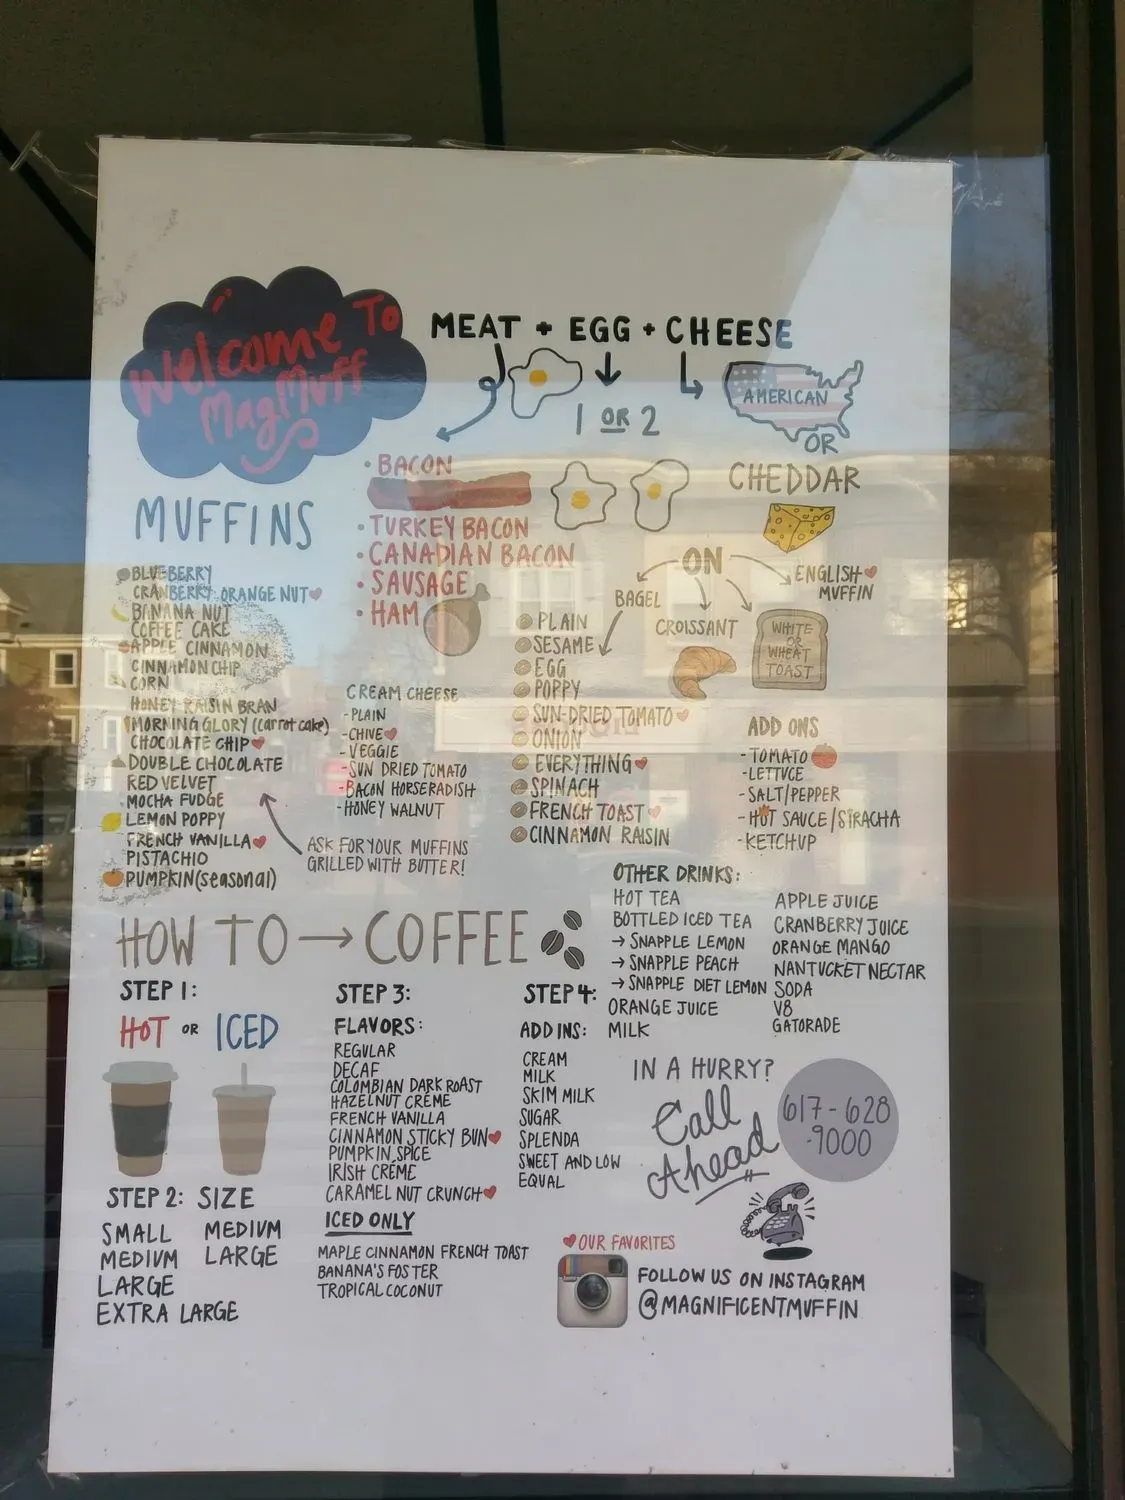 Welcome To
MagMuff
MEAT + EGG + CHEESE
1 OR 2
AMERICAN
OR
CHEDDAR
• BACON
• TURKEY BACON
• CANADIAN BACON
• SAUSAGE
• HAM
ON
BAGEL
CROISSANT
WHITE
OR
WHEAT
TOAST
ENGLISH
MUFFIN
PLAIN
SESAME
EGG
POPPY
SUN-DRIED TOMATO
ONION
EVERYTHING
SPINACH
FRENCH TOAST
CINNAMON RAISIN
MUFFINS
BLUEBERRY
CRANBERRY ORANGE NUT
BANANA NUT
COFFEE CAKE
APPLE CINNAMON
CINNAMON CHIP
CORN
HONEY RAISIN BRAN
MORNING GLORY (carrot cake)
CHOCOLATE CHIP
DOUBLE CHOCOLATE
RED VELVET
MOCHA FUDGE
LEMON POPPY
FRENCH VANILLA
PISTACHIO
PUMPKIN (seasonal)
ASK FOR YOUR MUFFINS
GRILLED WITH BUTTER!
CREAM CHEESE
- PLAIN
- CHIVE
- VEGGIE
- SUN DRIED TOMATO
- BACON HORSERADISH
- HONEY WALNUT
ADD ONS
- TOMATO
- LETTUCE
- SALT/PEPPER
- HOT SAUCE/SIRACHA
- KETCHUP
OTHER DRINKS:
HOT TEA
BOTTLED ICED TEA
→ SNAPPLE LEMON
→ SNAPPLE PEACH
→ SNAPPLE DIET LEMON
ORANGE JUICE
MILK
APPLE JUICE
CRANBERRY JUICE
ORANGE MANGO
NANTUCKET NECTAR
SODA
V8
GATORADE
HOW TO → COFFEE
STEP 1:
HOT OR ICED
STEP 2: SIZE
SMALL
MEDIUM
LARGE
EXTRA LARGE
MEDIUM
LARGE
STEP 3:
FLAVORS:
REGULAR
DECAF
COLOMBIAN DARK ROAST
HAZELNUT CRÈME
FRENCH VANILLA
CINNAMON STICKY BUN
PUMPKIN SPICE
IRISH CRÈME
CARAMEL NUT CRUNCH
ICED ONLY
MAPLE CINNAMON FRENCH TOAST
BANANA'S FOSTER
TROPICAL COCONUT
STEP 4:
ADD INS:
CREAM
MILK
SKIM MILK
SUGAR
SPLENDA
SWEET AND LOW
EQUAL
IN A HURRY?
Call
Ahead
617-628
-9000
OUR FAVORITES
FOLLOW US ON INSTAGRAM
@MAGNIFICENTMUFFIN